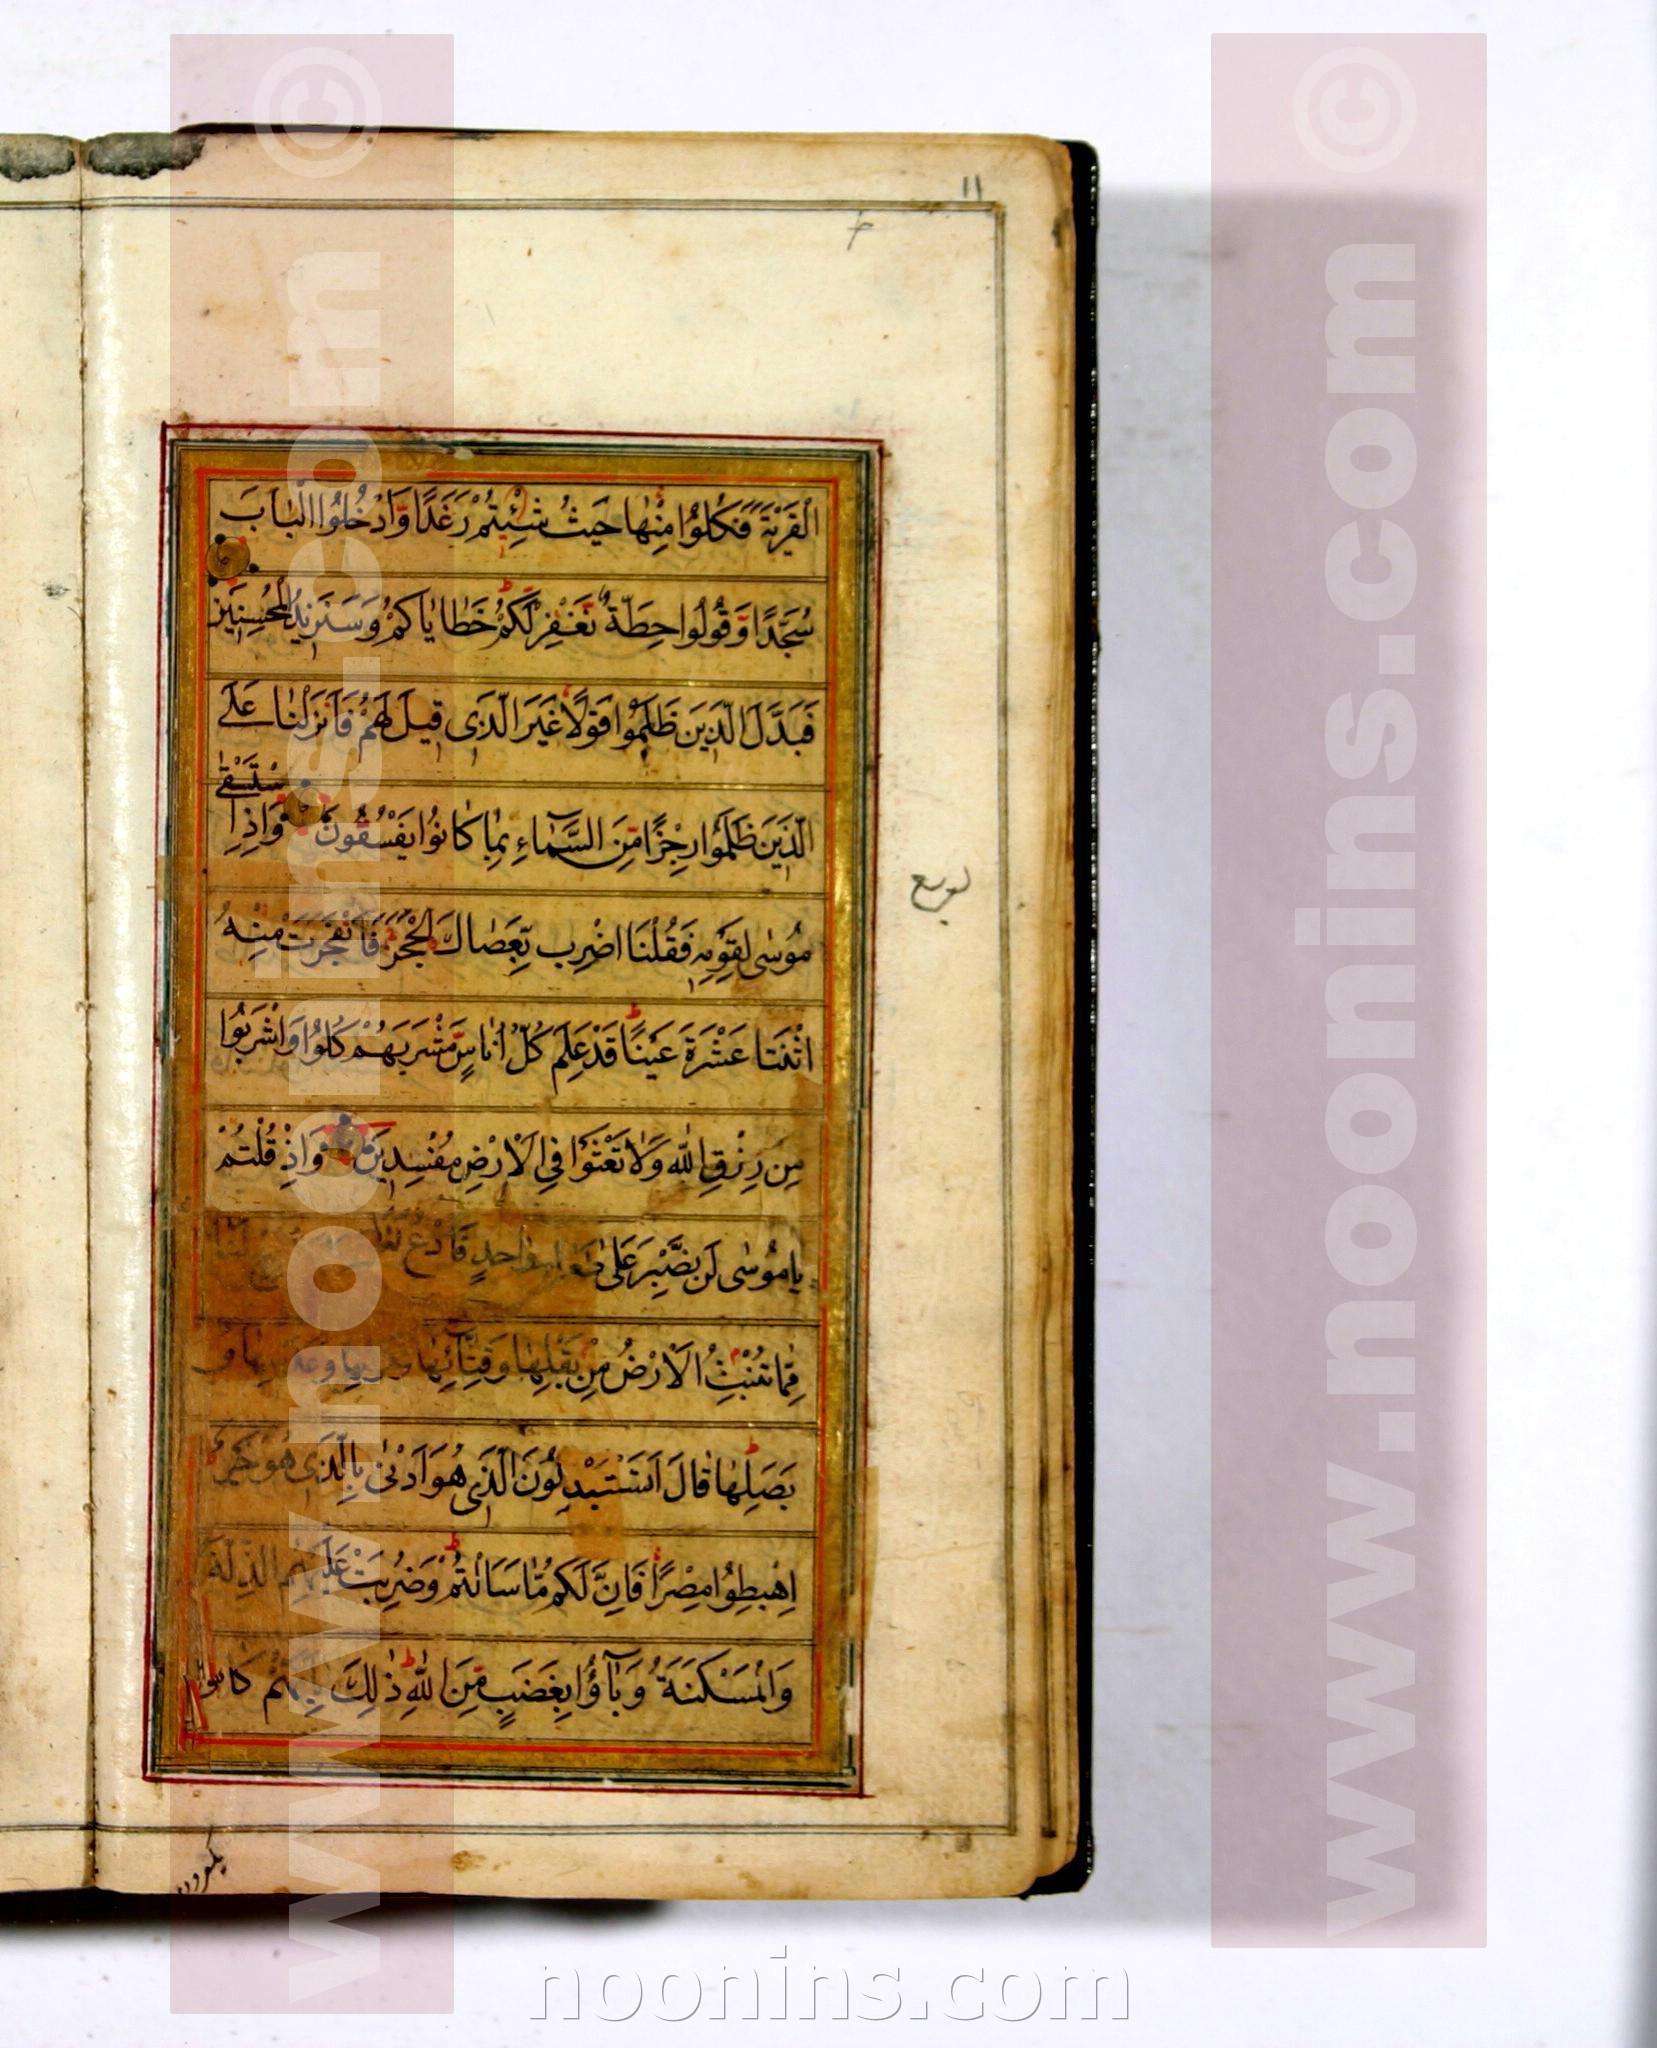 ١١
الْقَرْيَةَ فَكُلُوا مِنْهَا حَيْثُ شِئْتُمْ رَغَدًا وَادْخُلُوا الْبَابَ
سُجَّدًا وَقُولُوا حِطَّةٌ نَغْفِرْ لَكُمْ خَطَايَاكُمْ وَسَنَزِيدُ الْمُحْسِنِينَ
فَبَدَّلَ الَّذِينَ ظَلَمُوا قَوْلًا غَيْرَ الَّذِي قِيلَ لَهُمْ فَأَنْزَلْنَا عَلَى
الَّذِينَ ظَلَمُوا رِجْزًا مِنَ السَّمَاءِ بِمَا كَانُوا يَفْسُقُونَ وَإِذِ اسْتَسْقَى
مُوسَى لِقَوْمِهِ فَقُلْنَا اضْرِبْ بِعَصَاكَ الْحَجَرَ فَانْفَجَرَتْ مِنْهُ
اثْنَتَا عَشْرَةَ عَيْنًا قَدْ عَلِمَ كُلُّ أُنَاسٍ مَشْرَبَهُمْ كُلُوا وَاشْرَبُوا
مِنْ رِزْقِ اللَّهِ وَلَا تَعْثَوْا فِي الْأَرْضِ مُفْسِدِينَ وَإِذْ قُلْتُمْ
يَا مُوسَى لَنْ نَصْبِرَ عَلَى طَعَامٍ وَاحِدٍ فَادْعُ لَنَا
مِمَّا تُنْبِتُ الْأَرْضُ مِنْ بَقْلِهَا وَقِثَّائِهَا وَفُومِهَا وَعَدَسِهَا وَ
بَصَلِهَا قَالَ أَتَسْتَبْدِلُونَ الَّذِي هُوَ أَدْنَى بِالَّذِي هُوَ خَيْرٌ
اهْبِطُوا مِصْرًا فَإِنَّ لَكُمْ مَا سَأَلْتُمْ وَضُرِبَتْ عَلَيْهِمُ الذِّلَّةُ
وَالْمَسْكَنَةُ وَبَاؤُا بِغَضَبٍ مِنَ اللَّهِ ذَلِكَ بِأَنَّهُمْ كَانُوا
يكفرون
www.noonins.com ©
www.noonins.com ©
noonins.com